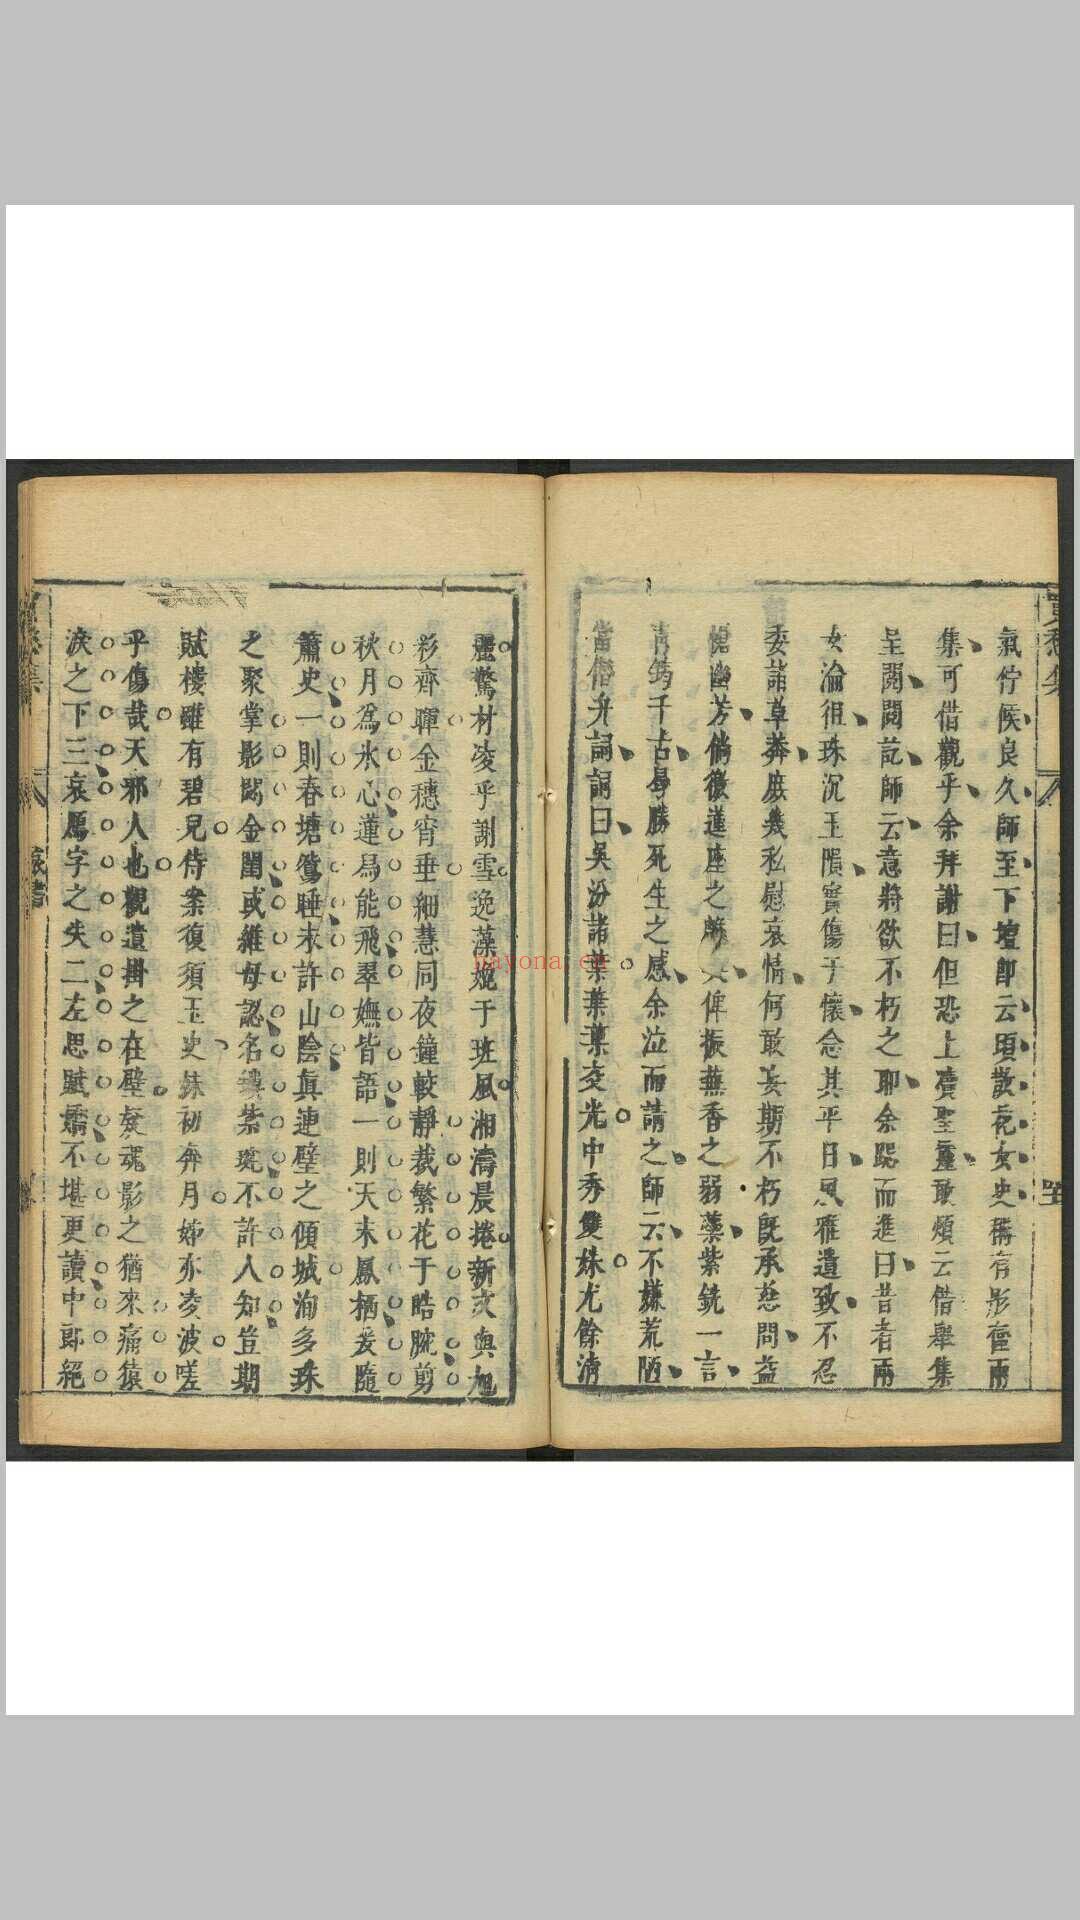 氣佇候良久師至下壇卽云頃散花女史稱有彤奩兩
集可借觀乎余拜謝曰但恐上瀆聖靈敢煩云借舉集
呈閱閱訖師云意將欲不朽之耶余跽而進曰昔者兩
女淪徂珠沉玉隕實傷于懷念其平日風雅遺致不忍
委諸草莽庶幾私慰哀情何敢妄期不朽旣承慈問益
愧幽芳倘徼蓮座之俾振蕪香之弱藻紫銑一言
青鏤千古尋勝死生之感余泣而請之師云不嫌荒陋
當僭弁詞詞曰吳汾諸葉葉葉交光中秀雙姝尤餘清
麗驚材凌乎謝雪逸藻媲于班風湘濤晨捲新文與旭
彩齊暉金穗宵垂細慧同夜鐘較靜裁繁花于皓腕剪
秋月爲氷心蓮爲能飛翠嫵皆語一則天末鳳栖爰隨
簫史一則春塘鴛睡未許山陰眞連璧之傾城洵多珠
之聚掌影閟金閨或維母認名鐫紫琬不許人知豈期
賦樓雖有碧兒侍案復須玉史妹初奔月姊亦凌波嗟
乎傷哉天邪人也觀遺掛之在壁疑魂影之猶來痛猿
淚之下三哀鴈字之失二左思賦嬌不堪更讀中郎絕